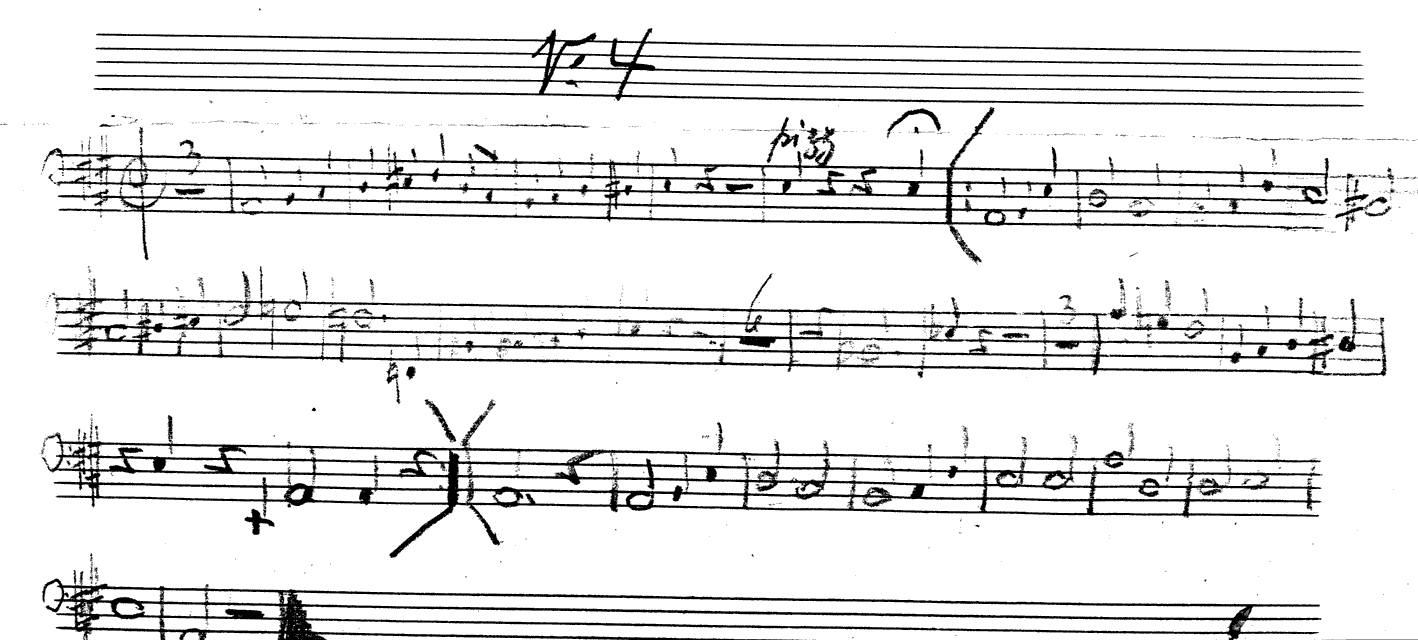 N: 4
3
pizz
6
3